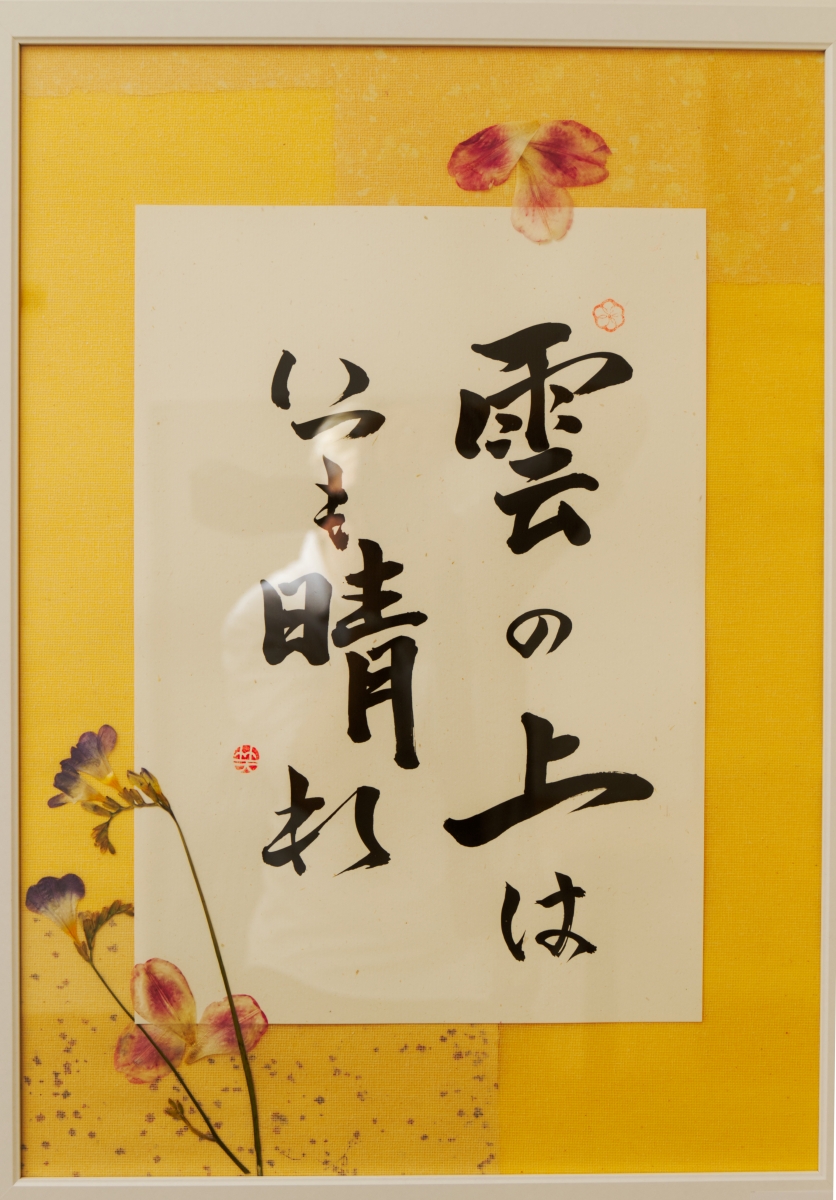 雲の上は
いつも晴れ